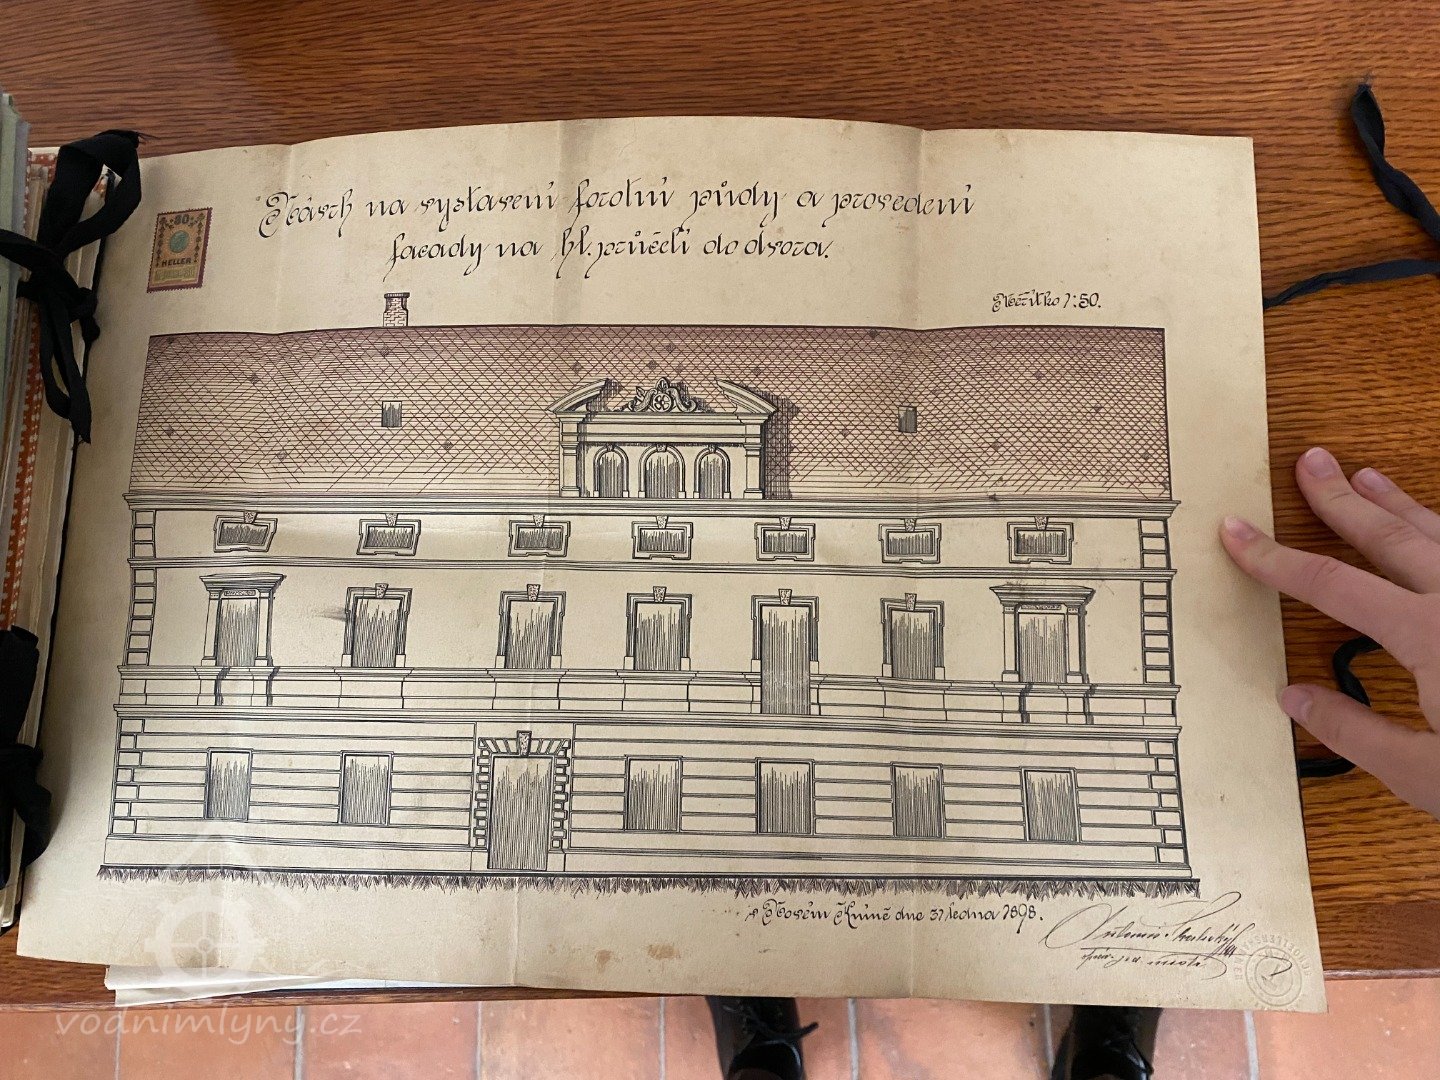 Návrh na vystavení forotní půdy a provedení
facady na hl. průčelí do dvora.
80
HELLER
Měřítko 1:50.
v Novém Kníně dne 31 ledna 1898.
Antonín
vodnimlyny.cz